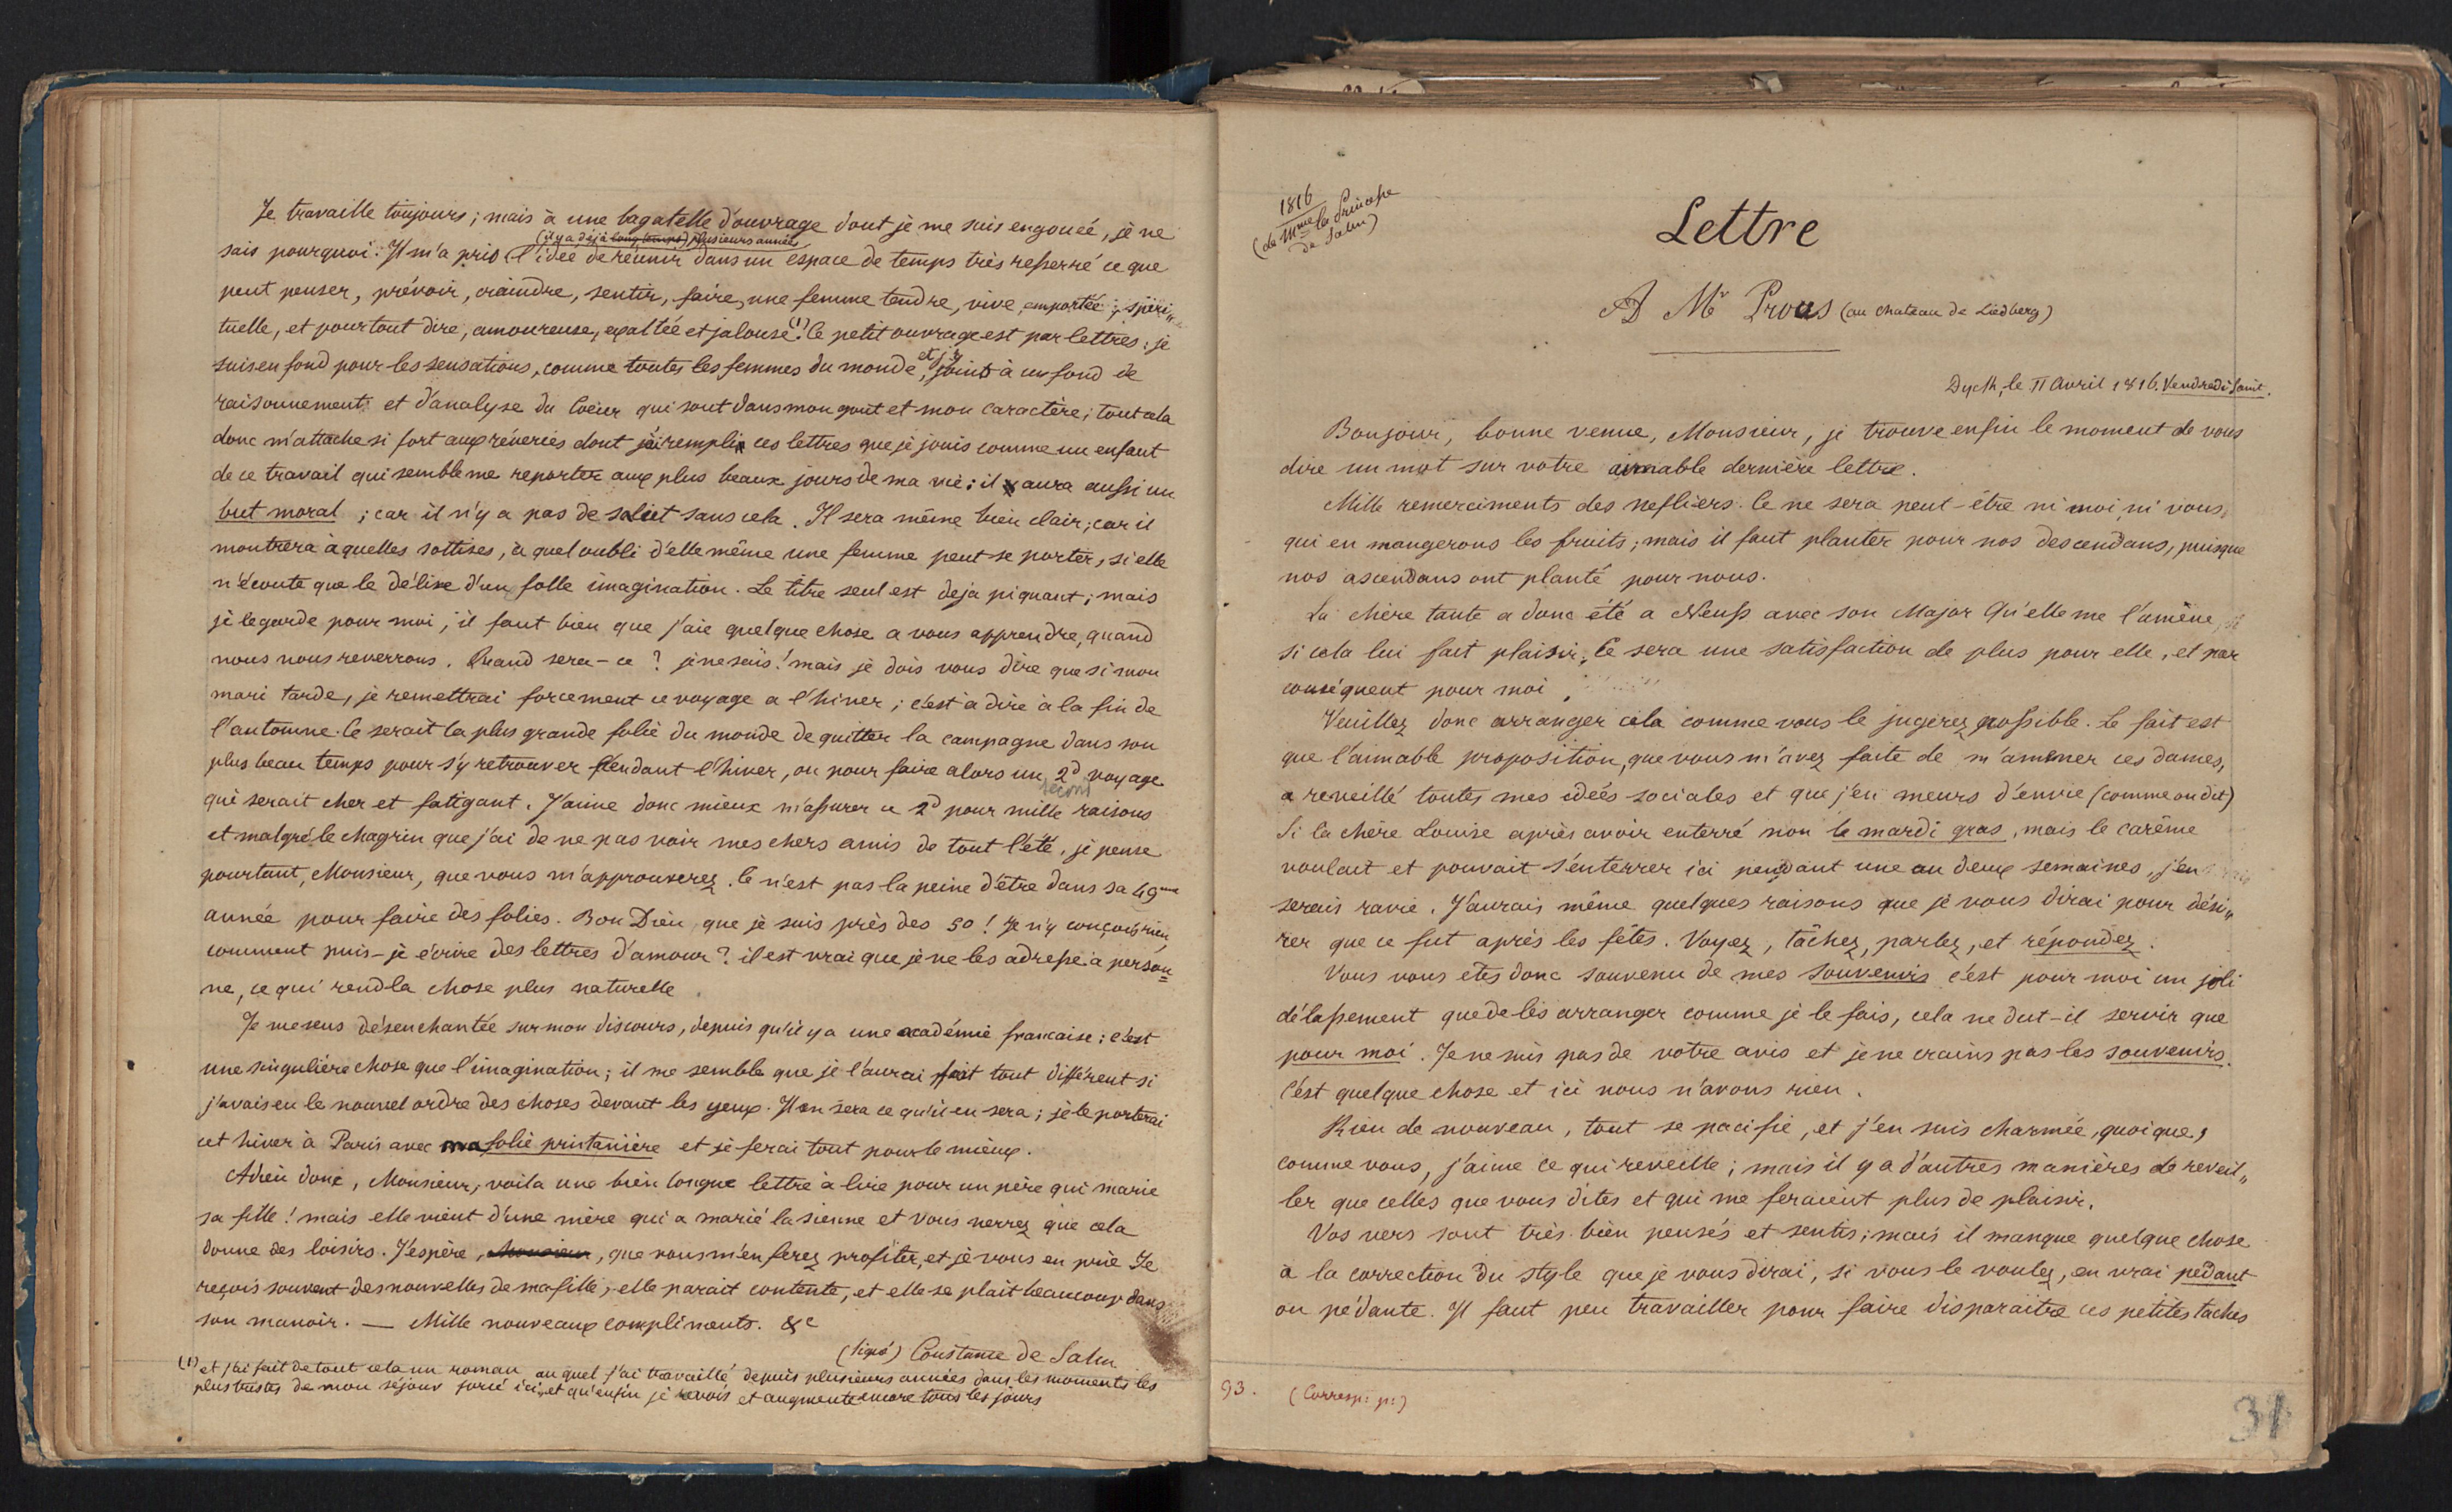 Je travaille toujours; mais à une bagatelle d'ouvrage dont je me suis engouée, je ne
(il y a déjà longtemps) plusieurs années
sais pourquoi. Il m'a pris l'idée de réunir dans un espace de temps très resserré ce que
peut penser, prévoir, craindre, sentir, faire, une femme tendre, vive, emportée, spiri„
tuelle, et pour tout dire, amoureuse, exaltée et jalouse (1). Ce petit ouvrage est par lettres; je
suis en fond pour les sensations, comme toutes les femmes du monde, et j'y joins à un fond de
raisonnement et d'analyse du Coeur qui sont dans mon gout et mon caractère; tout cela
donc m'attache si fort aux rêveries dont j'ai rempli ces lettres que je jouis comme un enfant
de ce travail qui semble me reporter aux plus beaux jours de ma vie; il y aura aussi un
but moral; car il n'y a pas de salut sans cela. Il sera même bien clair; car il
montrera à quelles sottises, à quel oubli d'elle même une femme peut se porter, si elle
n'écoute que le délire d'un folle imagination. Le titre seul est deja piquant; mais
je le garde pour moi; il faut bien que j'aie quelque chose a vous apprendre, quand
nous nous reverrons. Quand sera-ce? je ne sais! mais je dois vous dire que si mon
mari tarde, je remettrai forcement ce voyage a l'hiver; c'est à dire à la fin de
l'automne. Ce serait la plus grande folie du monde de quitter la campagne dans son
plus beau temps pour s'y retrouver pendant l'hiver, ou pour faire alors un 2d voyage
second
qui serait cher et fatigant. J'aime donc mieux m'assurer ce 2d pour mille raisons
et malgré le chagrin que j'ai de ne pas voir mes chers amis de tout l'été, je pense
pourtant, Monsieur, que vous m'approuverez. Ce n'est pas la peine d'être dans sa 49me
année pour faire des folies. Bon Dieu, que je suis près des 50! Je n'y conçois rien,
comment puis-je écrire des lettres d'amour? il est vrai que je ne les adresse à person=
ne, ce qui rend la chose plus naturelle.
Je me sens désenchantée sur mon discours, depuis qu'il y a une académie francaise; c'est
une singulière chose que l'imagination; il me semble que je l'aurai fait tout différent si
j'avais eu le nouvel ordre des choses devant les yeux. Il en sera ce qu'il en sera; je le porterai
cet hiver à Paris avec ma folie printanière et je ferai tout pour le mieux.
Adieu donc, Monsieur, voila une bien longue lettre à lire pour un père qui marie
sa fille! mais elle vient d'une mère qui a marié la sienne et vous verrez que cela
donne des loisirs. J'espère, Monsieur, que vous m'en ferez profiter, et je vous en prie Je
reçois souvent des nouvelles de ma fille; elle parait contente, et elle se plait beaucoup dans
son manoir. — Mille nouveaux compliments. &c
(signé) Constance de Salm
(1) et j'ai fait de tout cela un roman auquel j'ai travaillé depuis plusieurs années dans les moments les
plus tristes de mon séjour forcé ici, et qu'enfin je revois et augmente encore tous les jours
1816
(de Mme la Princesse
de Salm)
Lettre
A Mr Prous (au chateau de Liedberg)
Dyck, le 11 avril 1816. Vendredi Saint.
Bonjour, bonne venue, Monsieur, je trouve enfin le moment de vous
dire un mot sur votre aimable dernière lettre.
Mille remerciments des nefliers. Ce ne sera peut-être ni moi, ni vous,
qui en mangerons les fruits; mais il faut planter pour nos descendans, puisque
nos ascendans ont planté pour nous.
La chère tante a donc été a Neuss avec son Major Qu'elle me l'amène,
si cela lui fait plaisir; Ce sera une satisfaction de plus pour elle, et par
conséquent pour moi.
Veuillez donc arranger cela comme vous le jugerez possible. Le fait est
que l'aimable proposition, que vous m'avez faite de m'amener ces dames,
a reveillé toutes mes idées sociales et que j'en meurs d'envie (comme on dit)
Si la chère Louise après avoir enterré non le mardi gras, mais le carême
voulait et pouvait s'enterrer ici pendant une ou deux semaines, j'en
serais ravie. J'aurais même quelques raisons que je vous dirai pour dési„
rer que ce fut après les fêtes. Voyez, tâchez, parlez, et répondez.
Vous vous êtes donc souvenu de mes souvenirs c'est pour moi un joli
délassement que de les arranger comme je le fais, cela ne dut-il servir que
pour moi. Je ne suis pas de votre avis et je ne crains pas les souvenirs.
C'est quelque chose et ici nous n'avons rien.
Rien de nouveau, tout se pacifie, et j'en suis charmée, quoique,
comme vous, j'aime ce qui reveille; mais il y a d'autres manières de reveil„
ler que celles que vous dites et qui me feraient plus de plaisir.
Vos vers sont très bien pensés et sentis; mais il manque quelque chose
à la correction du style que je vous dirai, si vous le voulez, en vrai pedant
ou pédante. Il faut peu travailler pour faire disparaitre ces petites taches
93.
(Corresp: p:)
31